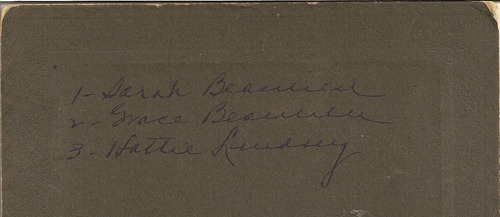 1- Sarah Beaumier
2- Grace Beaumier
3- Hattie Lindsey